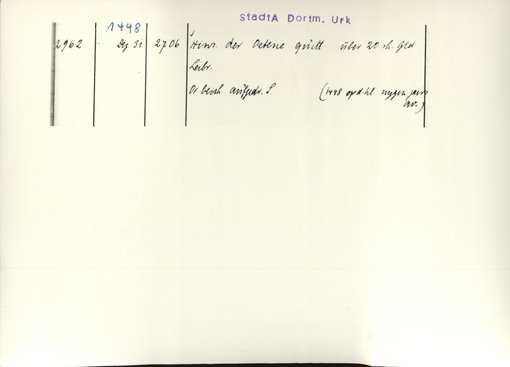 StadtA Dortm. Urk
1448
2962 Dez 31 2706 Hinr. der Oetene quitt über 20 rh. Gld
Leibr.
Or. besch aufgedr. S (1448 op d hl nygen jars
av.)